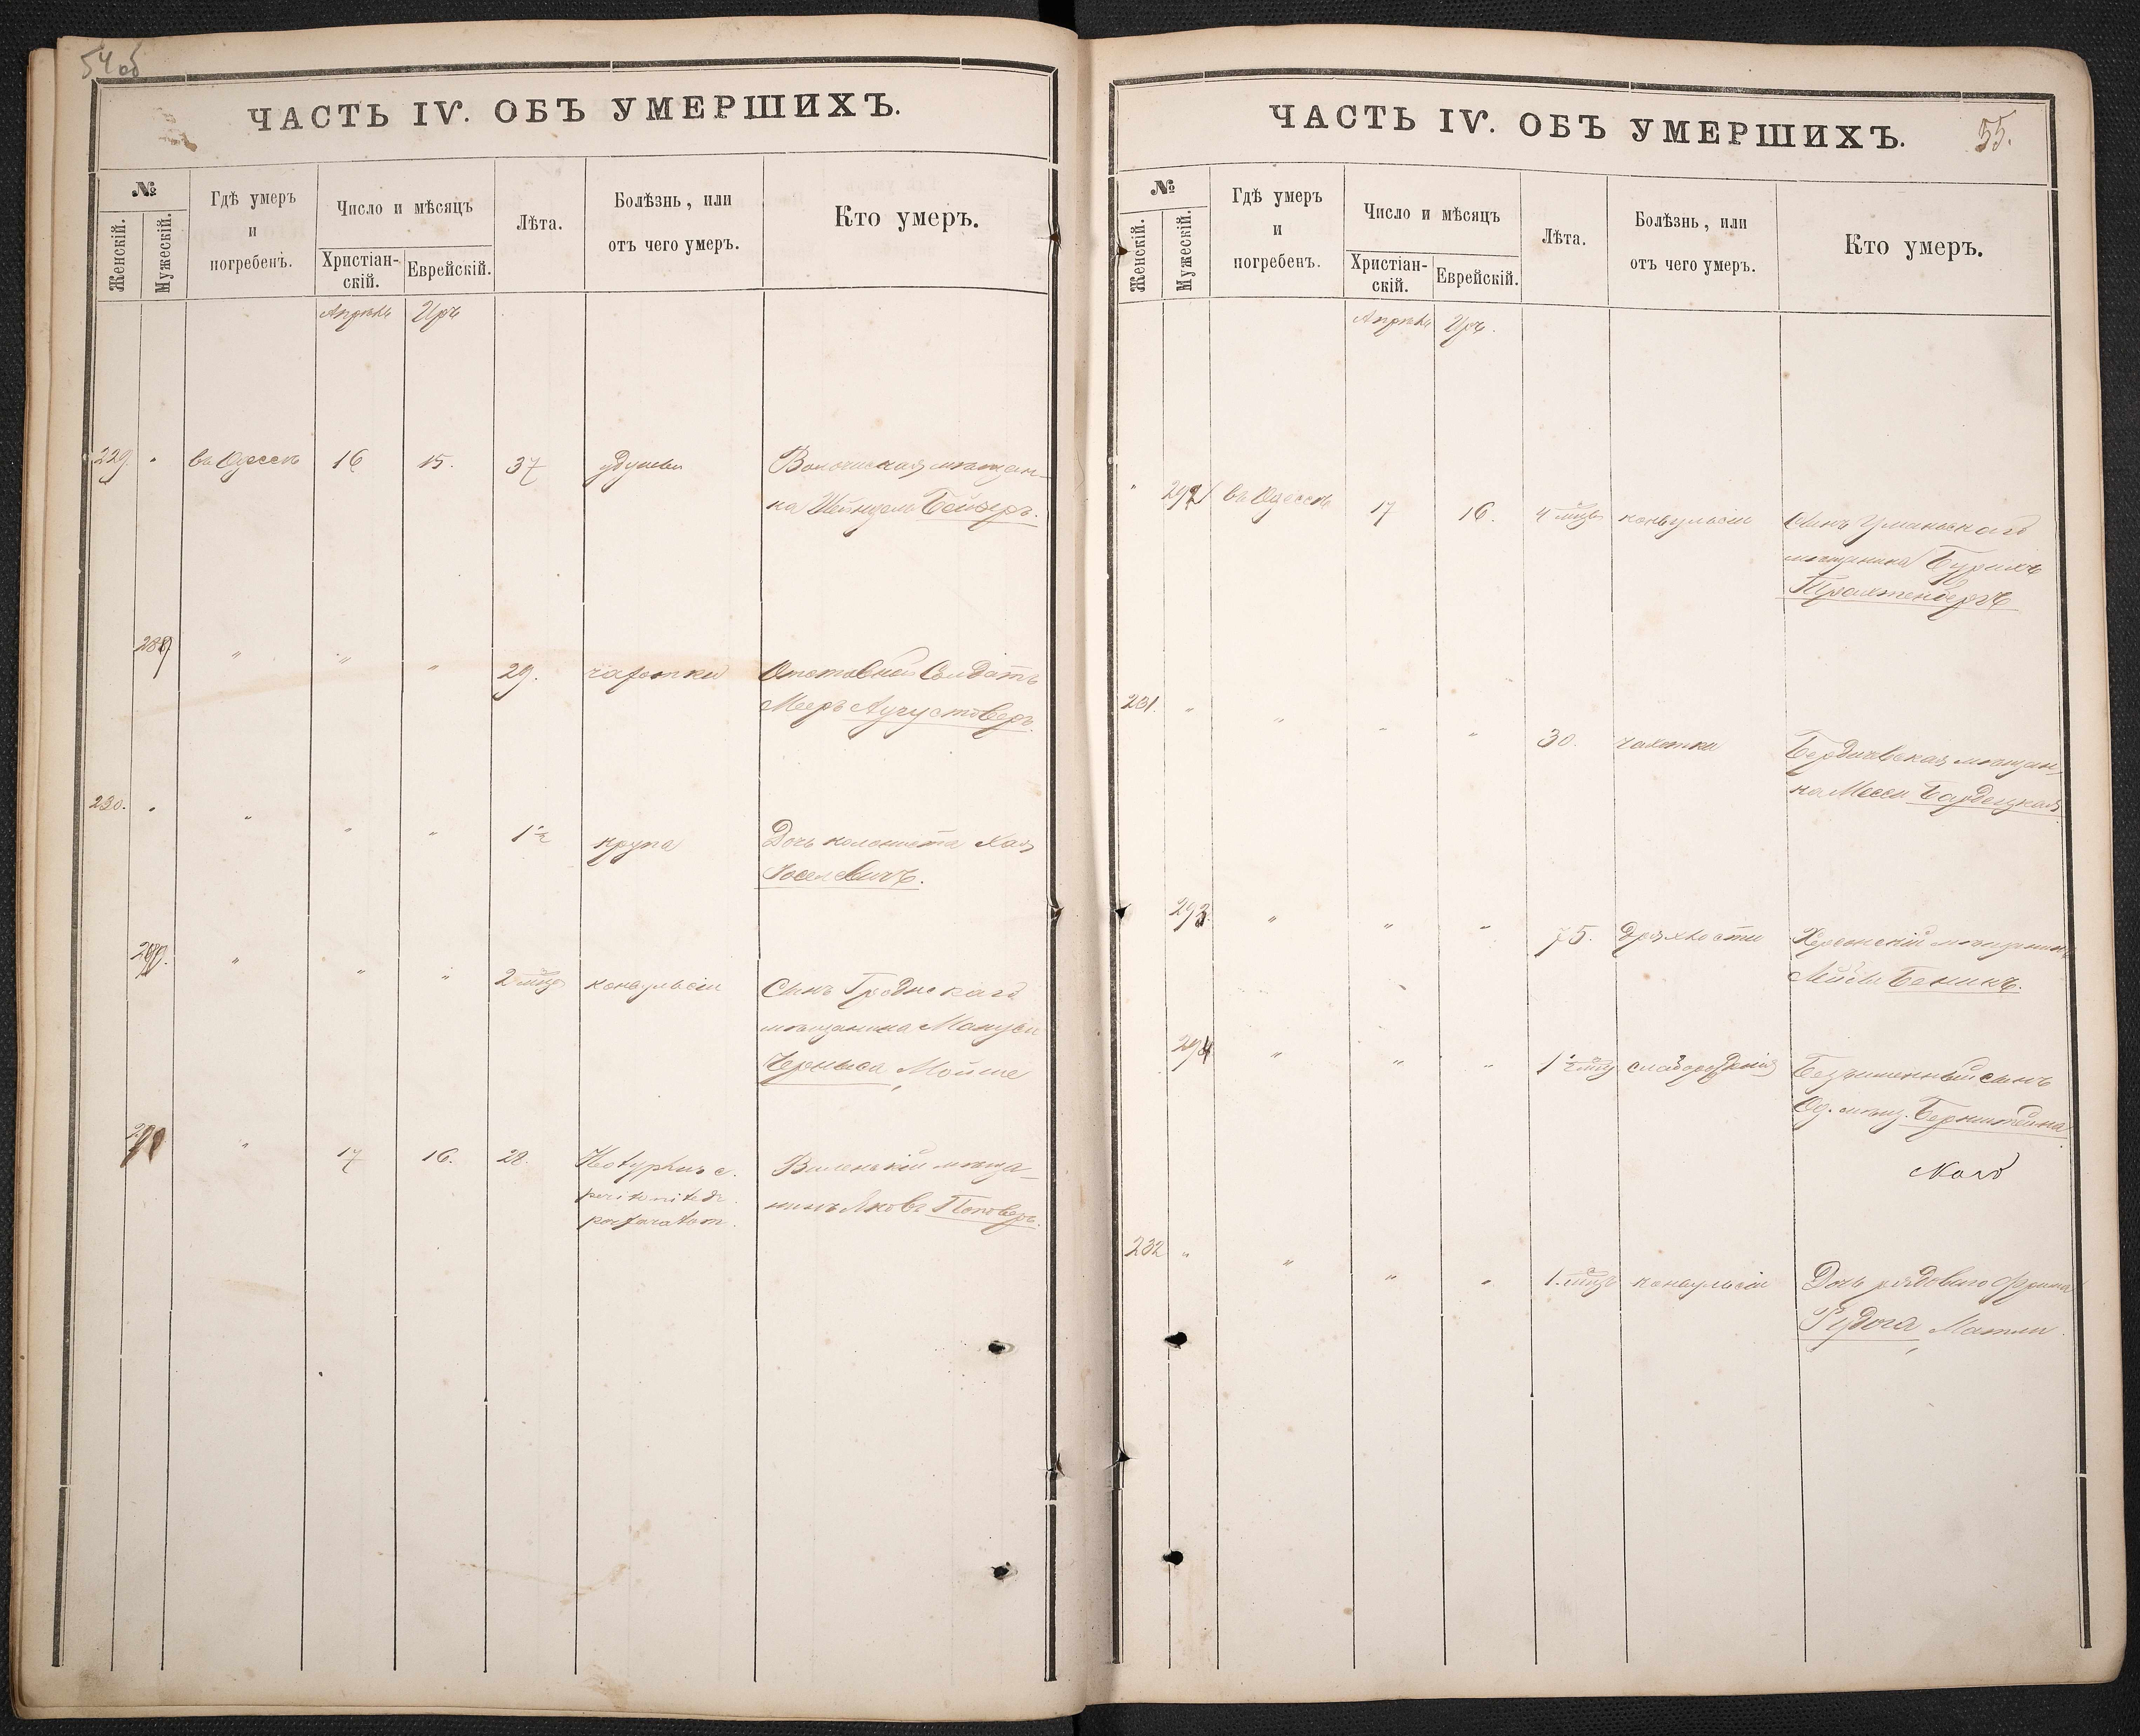 54 об
ЧАСТЬ IV. ОБЪ УМЕРШИХЪ.
№
Женскій.
Мужескій.
Гдѣ умеръ
и
погребенъ.
Число и мѣсяцъ
Христіан-
скій.
Еврейскій.
Лѣта.
Болѣзнь, или
отъ чего умеръ.
Кто умеръ.
Апрѣль Иръ
229. " въ Одессѣ 16 15. 37 удушья
Волочиская мѣщан-
ка Шейндель Бейзеръ.
289 " " " 29. чахотки Отставной Солдатъ
Мееръ Аугустоверъ.
230. " " " " 1½ крупа Дочь колониста Хая
Іоселевичъ.
290. " " " 2 мѣс конвульсіи Сынъ Гродненскаго
мѣщанина
Черныса, Мойше
291 " 17 16. 28. typhus c.
peritonitide
perforatom.
Виленскій мѣща-
нинъ Яковъ Поповеръ.
ЧАСТЬ IV. ОБЪ УМЕРШИХЪ.
55.
№
Женскій.
Мужескій.
Гдѣ умеръ
и
погребенъ.
Число и мѣсяцъ
Христіан-
скій.
Еврейскій.
Лѣта.
Болѣзнь, или
отъ чего умеръ.
Кто умеръ.
Апрѣль Иръ.
" 292 въ Одессѣ 17 16. 4 мѣс конвульсіи Сынъ Уманскаго
мѣщанина Бурихъ
Трахтенберъ
231. " " " " 30. чахотки Бердичевская мѣщан-
ка Месси Бардецкая
293. " " " 75. дряхлости Херсонскій мѣщанинъ
Лейба Беникъ.
294 " " " 1½ мѣс слаборожденія Безъименный сынъ
Од. мѣщ. Бернштейна
232 " " " " 1. мѣсъ конвульсіи Дочь рядоваго Фроима
Рудога, Матли.